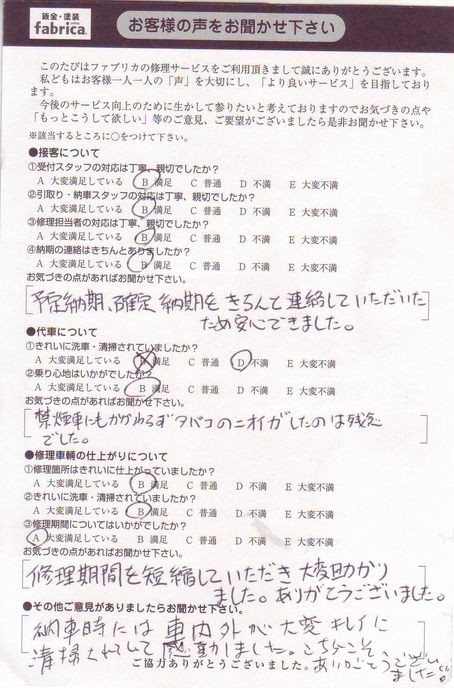 鈑金・塗装
fabrica.
お客様の声をお聞かせ下さい
このたびはファブリカの修理サービスをご利用頂きまして誠にありがとうございます。
私どもはお客様一人一人の「声」を大切にし、「より良いサービス」を目指しており
ます。
今後のサービス向上のために生かして参りたいと考えておりますのでお気づきの点や
「もっとこうして欲しい」等のご意見、ご要望がございましたら是非お聞かせ下さい。
※該当するところに○をつけて下さい。
●接客について
①受付スタッフの対応は丁寧、親切でしたか？
A 大変満足している B 満足 C 普通 D 不満 E 大変不満
②引取り・納車スタッフの対応は丁寧、親切でしたか？
A 大変満足している B 満足 C 普通 D 不満 E 大変不満
③修理担当者の対応は丁寧、親切でしたか？
A 大変満足している B 満足 C 普通 D 不満 E 大変不満
④納期の連絡はきちんとありましたか？
A 大変満足している B 満足 C 普通 D 不満 E 大変不満
お気づきの点があればお聞かせ下さい。
予定納期、確定納期をきちんと連絡していただいた
ため安心できました。
●代車について
①きれいに洗車・清掃されていましたか？
A 大変満足している B 満足 C 普通 D 不満 E 大変不満
②乗り心地はいかがでしたか？
A 大変満足している B 満足 C 普通 D 不満 E 大変不満
お気づきの点があればお聞かせ下さい。
禁煙車にもかかわらずタバコのニオイがしたのは残念
でした。
●修理車輌の仕上がりについて
①修理箇所はきれいに仕上がっていましたか？
A 大変満足している B 満足 C 普通 D 不満 E 大変不満
②きれいに洗車・清掃されていましたか？
A 大変満足している B 満足 C 普通 D 不満 E 大変不満
③修理期間についてはいかがでしたか？
A 大変満足している B 満足 C 普通 D 不満 E 大変不満
お気づきの点があればお聞かせ下さい。
修理期間を短縮していただき大変助かり
ました。ありがとうございました。
●その他ご意見がありましたらお聞かせ下さい。
納車時には車内外が大変キレイに
清掃されていて感動しました。こちらこそ
ありがとうござい
ました
ご協力ありがとうございました。